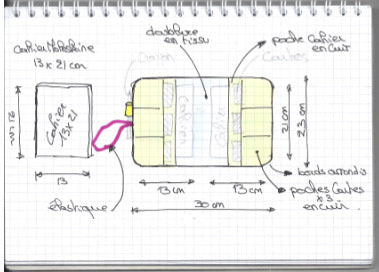 doublure
en tissu
poche Cahier
en cuir
Cahier
13 x 21 cm
Cahier
13x21
21 cm
13
élastique
13 cm
13 cm
30 cm
21 cm
23 cm
bords arrondis
poches Cartes
x3
en cuir